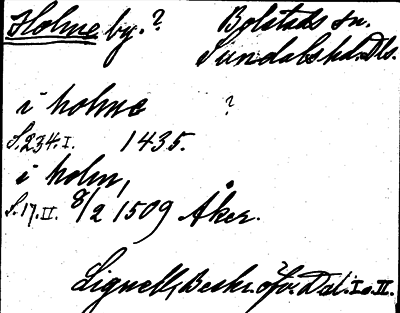 Holme by.? Bolstads sn.
Sundals hd. Dls.
i holme ?
S. 234. I. 1435.
i holm,
S. 17. II. 8/2 1509 Åker.
Lignell, Beskr. öfv. Dal. I o. II.